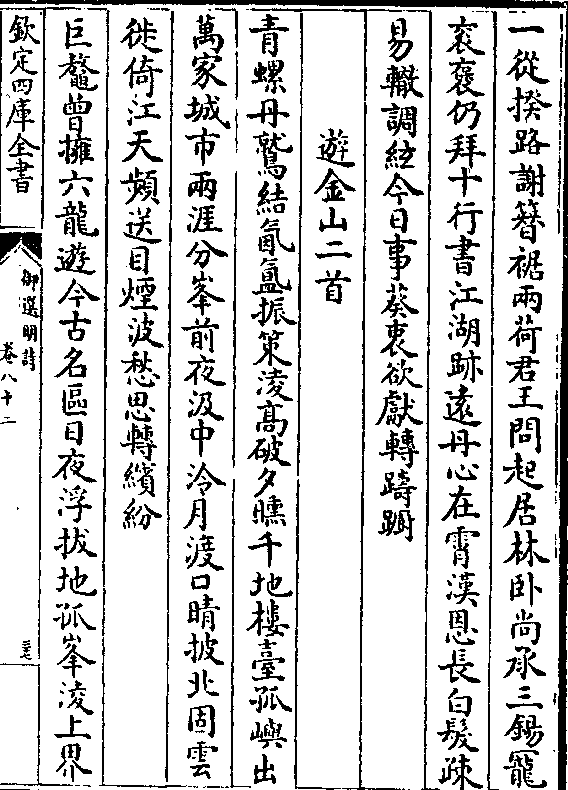 一從揆路謝簪裾兩荷君王問起居林卧尚承三錫寵
衮褒仍拜十行書江湖跡遠丹心在霄漢恩長白髮疎
易轍調絃今日事葵衷欲獻轉躊躕
遊金山二首
青螺丹鷲結氤氳振策淩高破夕曛千地樓臺孤嶼出
萬家城市兩涯分峯前夜汲中泠月渡口晴披北固雲
徙倚江天頻送目煙波愁思轉繽紛
巨鼇曾擁六龍遊今古名區日夜浮拔地孤峯淩上界
欽定四庫全書
御選明詩
卷八十二
三七